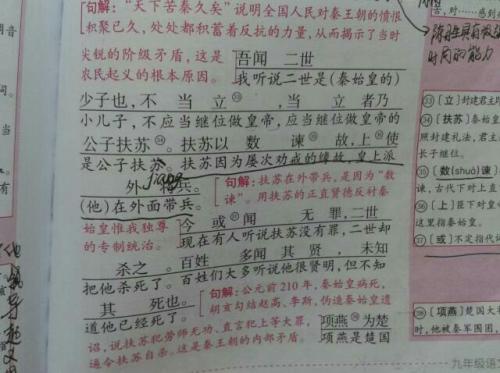 句解：“天下苦秦久矣”说明全国人民对秦王朝的愤恨
积聚已久，处处都积蓄着反抗的力量，从而揭示了当时
尖锐的阶级矛盾，这是
农民起义的根本原因。
吾闻 二世
我听说二世是（秦始皇的）
少子也，不 当 立㉝ ，当 立 者乃
小儿子，不应当继位做皇帝，应当继位做皇帝的
公子扶苏㉞。扶苏以 数 谏㉟ 故，上㊱使
是公子扶苏。扶苏因为屡次劝戒的缘故，皇上派
外 将兵。
（他）在外面带兵。
句解：扶苏在外带兵，是因为“数
谏”。用扶苏的正直贤德反衬秦
始皇惟我独尊
的专制统治。
今 或㊲ 闻 无 罪，二世
现在有人听说扶苏没有罪，二世却
杀之 。百姓 多闻 其 贤 ，未知
把他杀死了。百姓们大多听说他很贤明，但不知
其 死也。
道他已经死了。
句解：公元前210年，秦始皇病死，
胡亥勾结赵高、李斯，伪造秦始皇遗
诏，说扶苏犯劳师无功、直言犯上等大罪，
逼令扶苏自杀。这是秦王朝的内部矛盾。
项燕㊳为楚
项燕是楚国
㉝〔立〕封建君主
㉞〔扶苏〕秦始皇
照封建礼法，君主
长子继位。
㉟〔数(shuò)谏〕
谏，古代下对上直
㊱〔上〕臣下对皇
这里指秦始皇。
㊲〔或〕不定指代词
㊳〔项燕〕楚国大
时，他被秦军围困，
九年级语